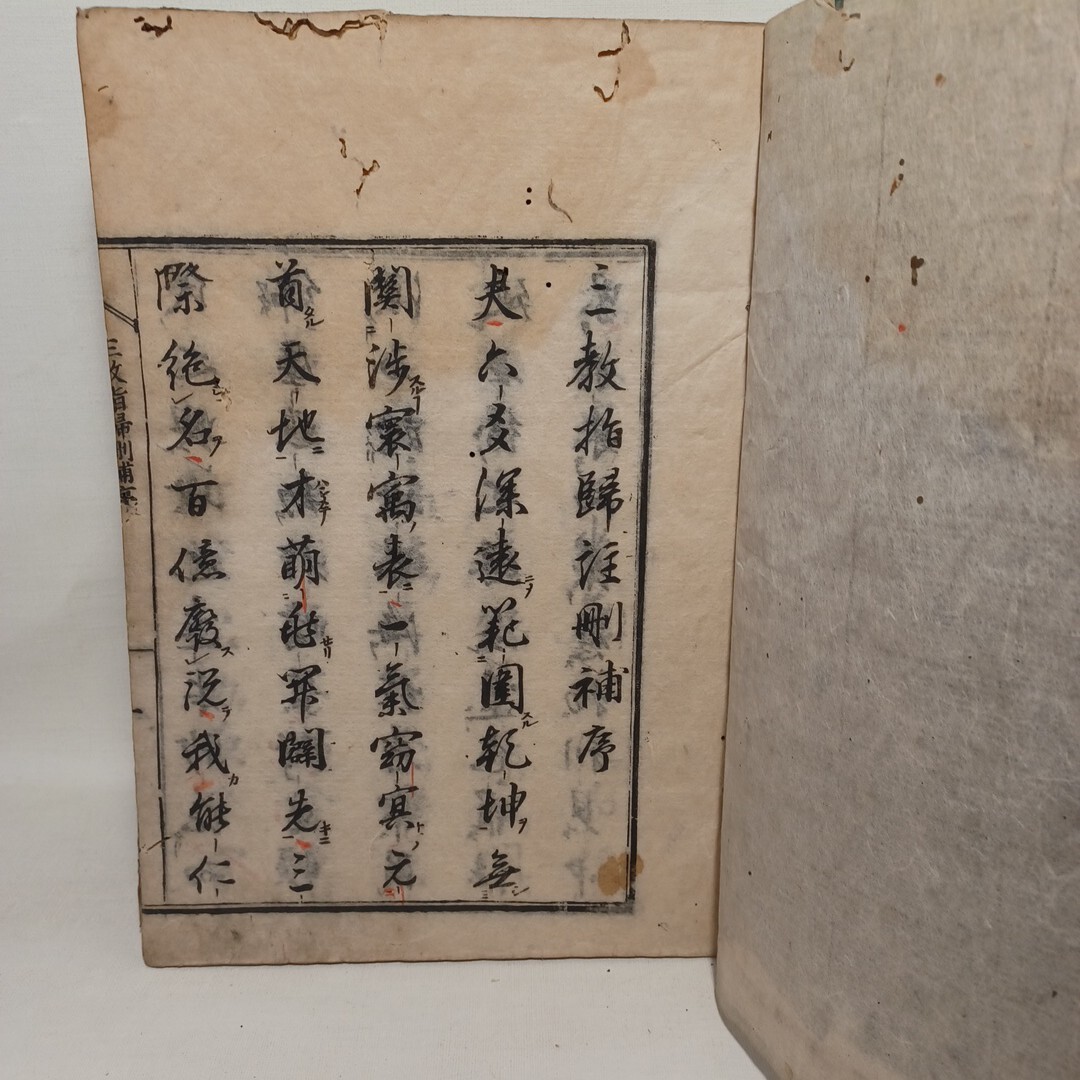 三教指歸註刪補序
夫六爻深遠範圍乾坤無
關涉寰寓表一氣窈冥元
首天地才萌能罪闢先三
際絶名百億廢説我能仁
三教指歸刪補序